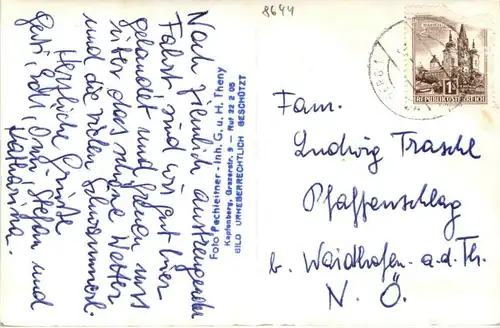 8644
Nach ziemlich anstrengender
Fahrt sind wir gut hier
gelandet und freuen uns
über das schöne Wetter
und die vielen
Herzliche Grüße
Stefan und
Katharina.
Foto Pachleitner - Inh. G. u. H. Theny
Kapfenberg, Grazerstr. 9 — Ruf 22 2 05
BILD URHEBERRECHTLICH BESCHÜTZT
REPUBLIK ÖSTERREICH
Fam.
Ludwig Traschl
Pfaffenschlag
b. Waidhofen a.d. Th.
N. Ö.